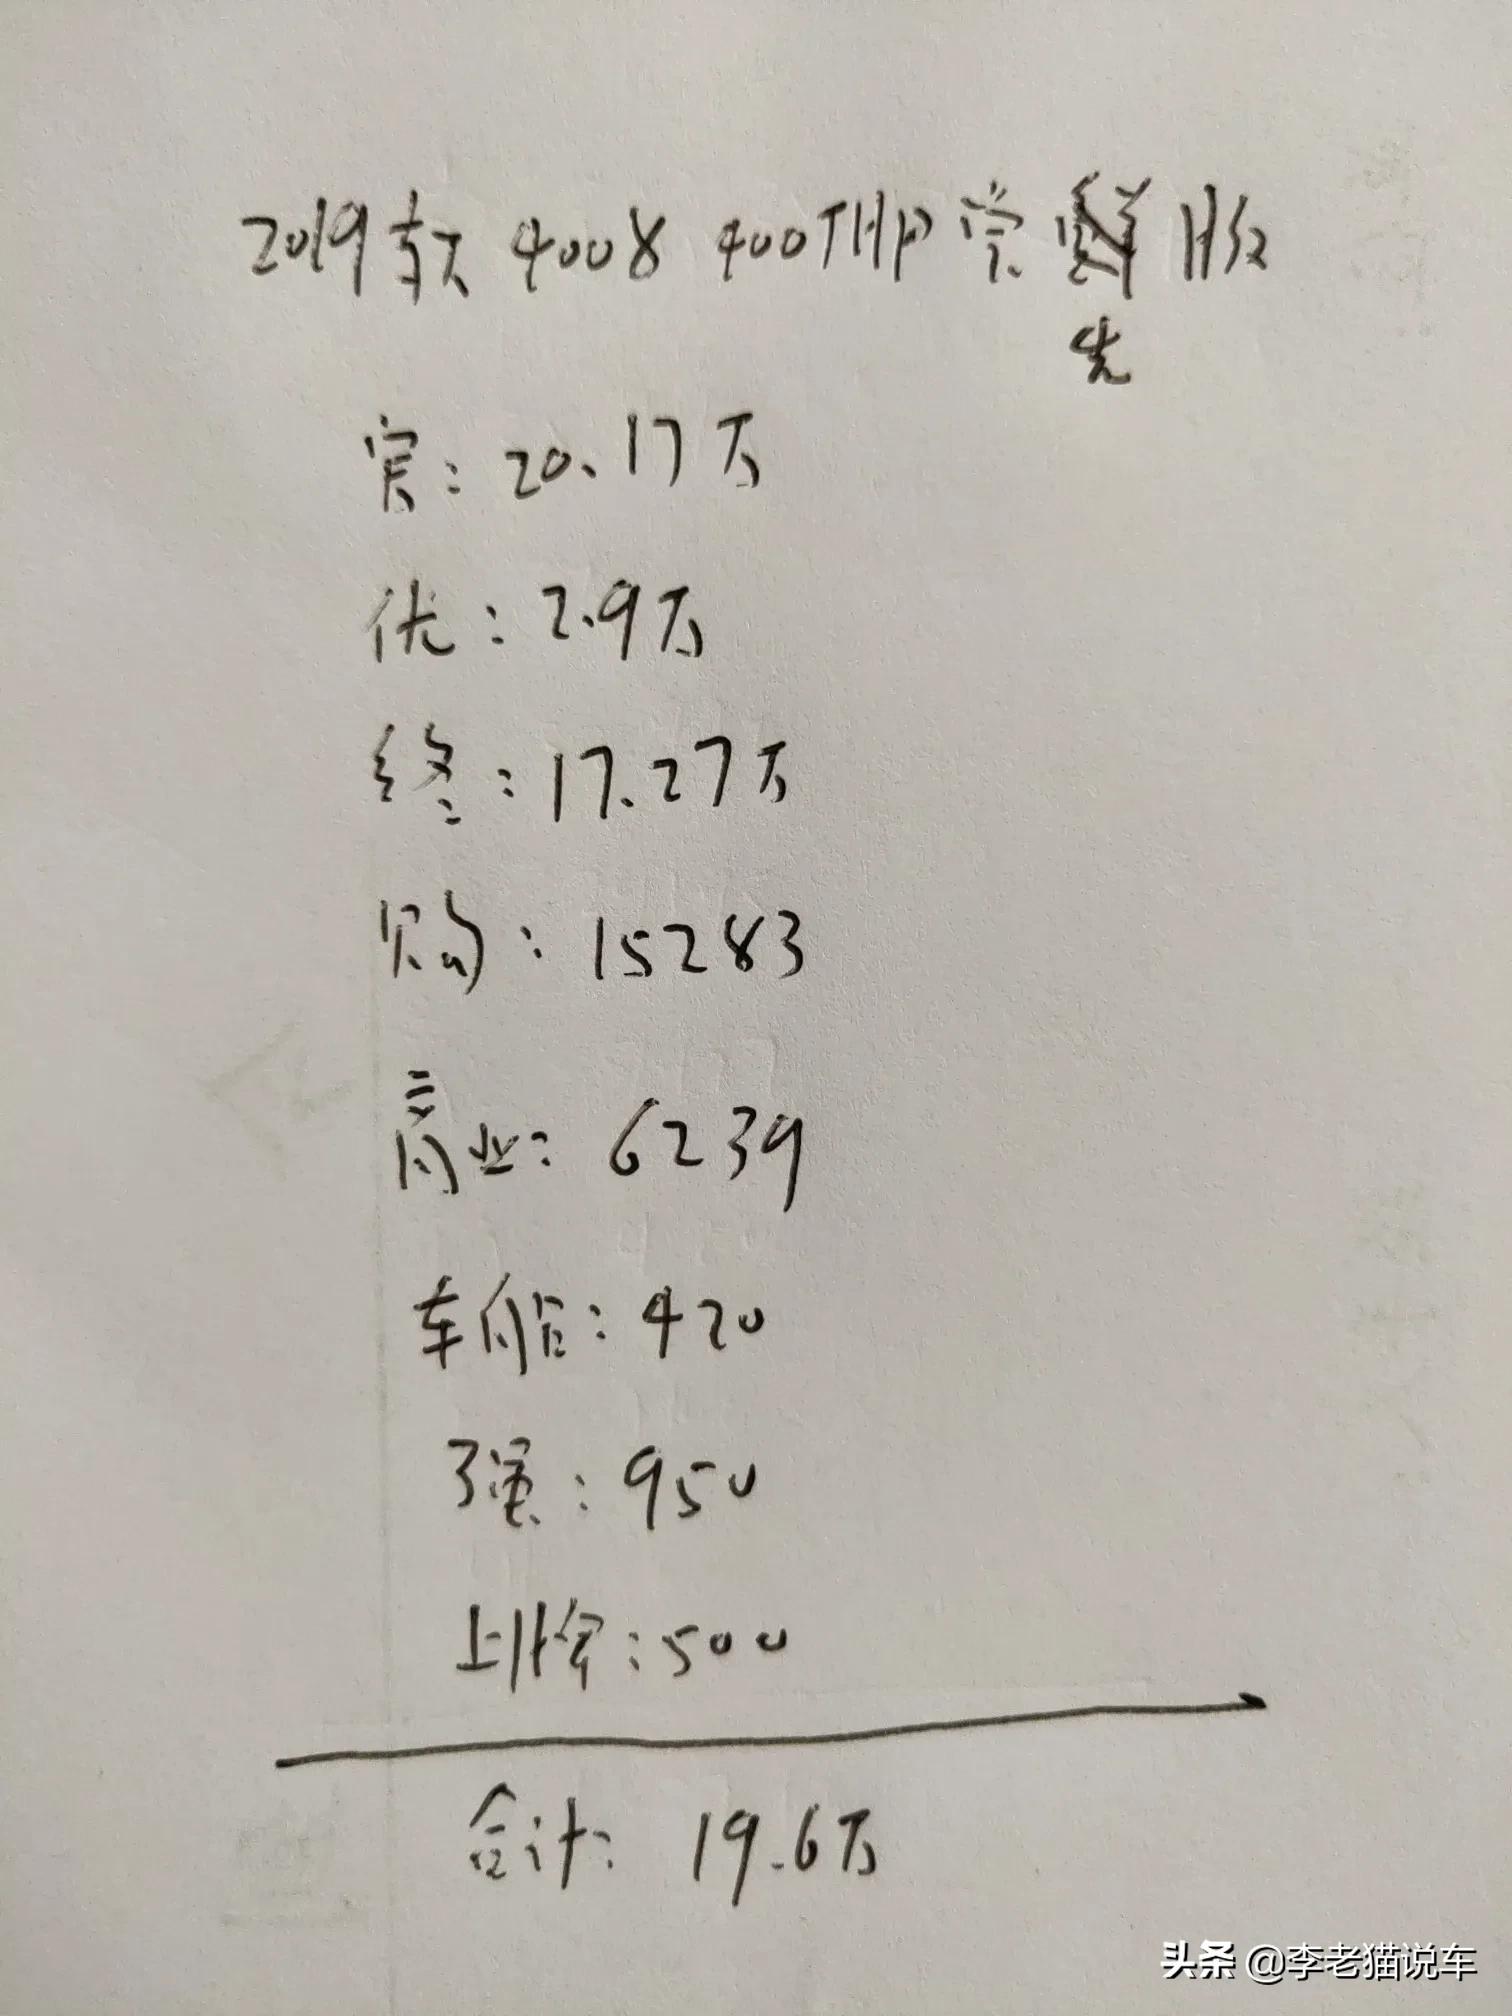 2019款 4008 400THP 完 版
先
官：20.17万
优：2.9万
终：17.27万
购：15283
商业：6239
车船：420
强：950
上牌：500
合计：19.6万
头条 @李老猫说车